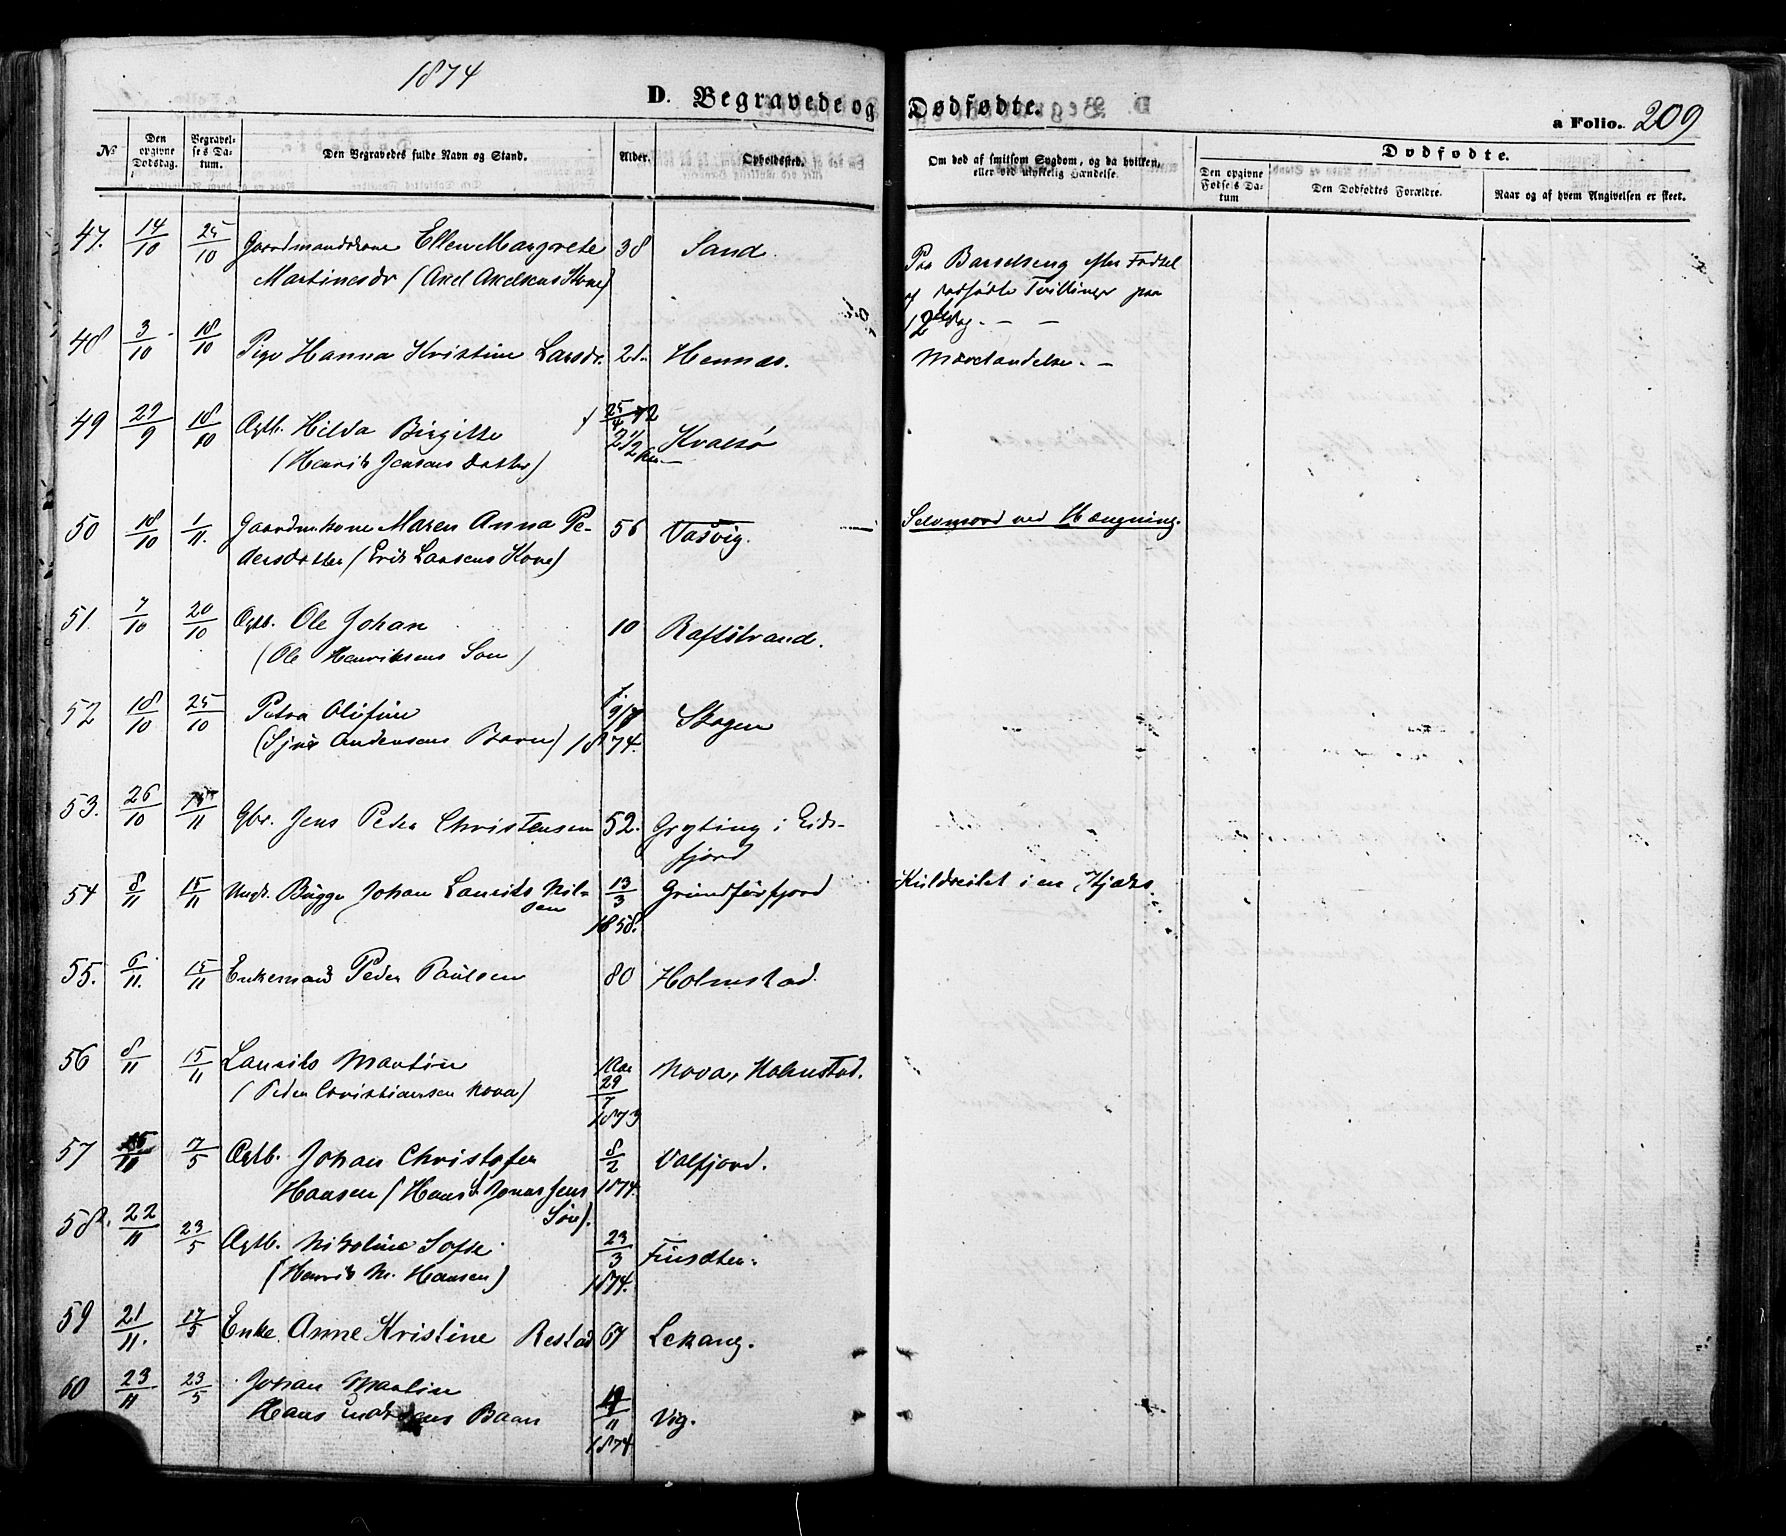 1874
D. Begravede og Dødfødte.
a Folio. 209
No
Den opgivne Dødsdag.
Begravelses Datum.
Den Begravedes fulde Navn og Stand.
Alder.
Opholdssted.
Om død af smitsom Sygdom, og da hvilken, eller ved ulykkelig Hændelse.
Dødfødte.
Den opgivne Fødsels Datum
Den Dødfødtes Forældre.
Naar og af hvem Angivelsen er skeet.
47. 14/10 25/10 Gaardmandskone Ellen Margrete 38 Sand. Paa Barselseng efter Fødsel
Martinesdr (Axel Axelsens Kone) af dødfødte Tvillinger paa
12
48 3/10 18/10 Pige Hanna Kristine Larsdr. 21. Hennes.
49 29/9 18/10 Ægtb. Hilda Birgitte f 25/4 72 Kvalsø
(Henrik Jensens Datter) 2 1/2 Aar
50 18/10 1/11. Gaardm.kone Maren Anna Pe- 56 Vasvig. Selvmord ved Hængning.
dersdatter (Erik Larsens Kone)
51. 7/10 20/10 Ægtb. Ole Johan 10 Raftstrand.
(Ole Henriksens Søn)
52 18/10 25/10 Petra Olufine f. 9/7 Skogen
( Andersens Barn) 1874.
53. 26/10 15/11 Gbr. Jens Peder Christensen 52. Gryting i Eids-
fjord
54 8/11 15/11 Ungk. Bugge Johan Laurits Nil- 13/3 Grundførfjord Kuldseilet i en
sen 1858.
55. 6/11. 15/11 Enkemand Peder Paulsen 80 Holmstad.
56 8/11 15/11 Laurits Martin 1 Aar Nova, Holmstad.
(Peder Christiansen Nova) 29/7 1873
57 15/10 7/5 Ægtb. Johan Christofer 8/2 Valfjord.
Hansen (Hans Jonassens 1874.
Søn).
58. 22/11 23/5 Ægtb. Nikoline Sofie 23/3 Finsæter.
(Henrik M. Hansen) 1874.
59 21/11. 17/5 Enke Anne Kristine Restad 67 Lekang.
60 23/11 23/5 Johan Martin
Hans Barn /11 Vig.
1874